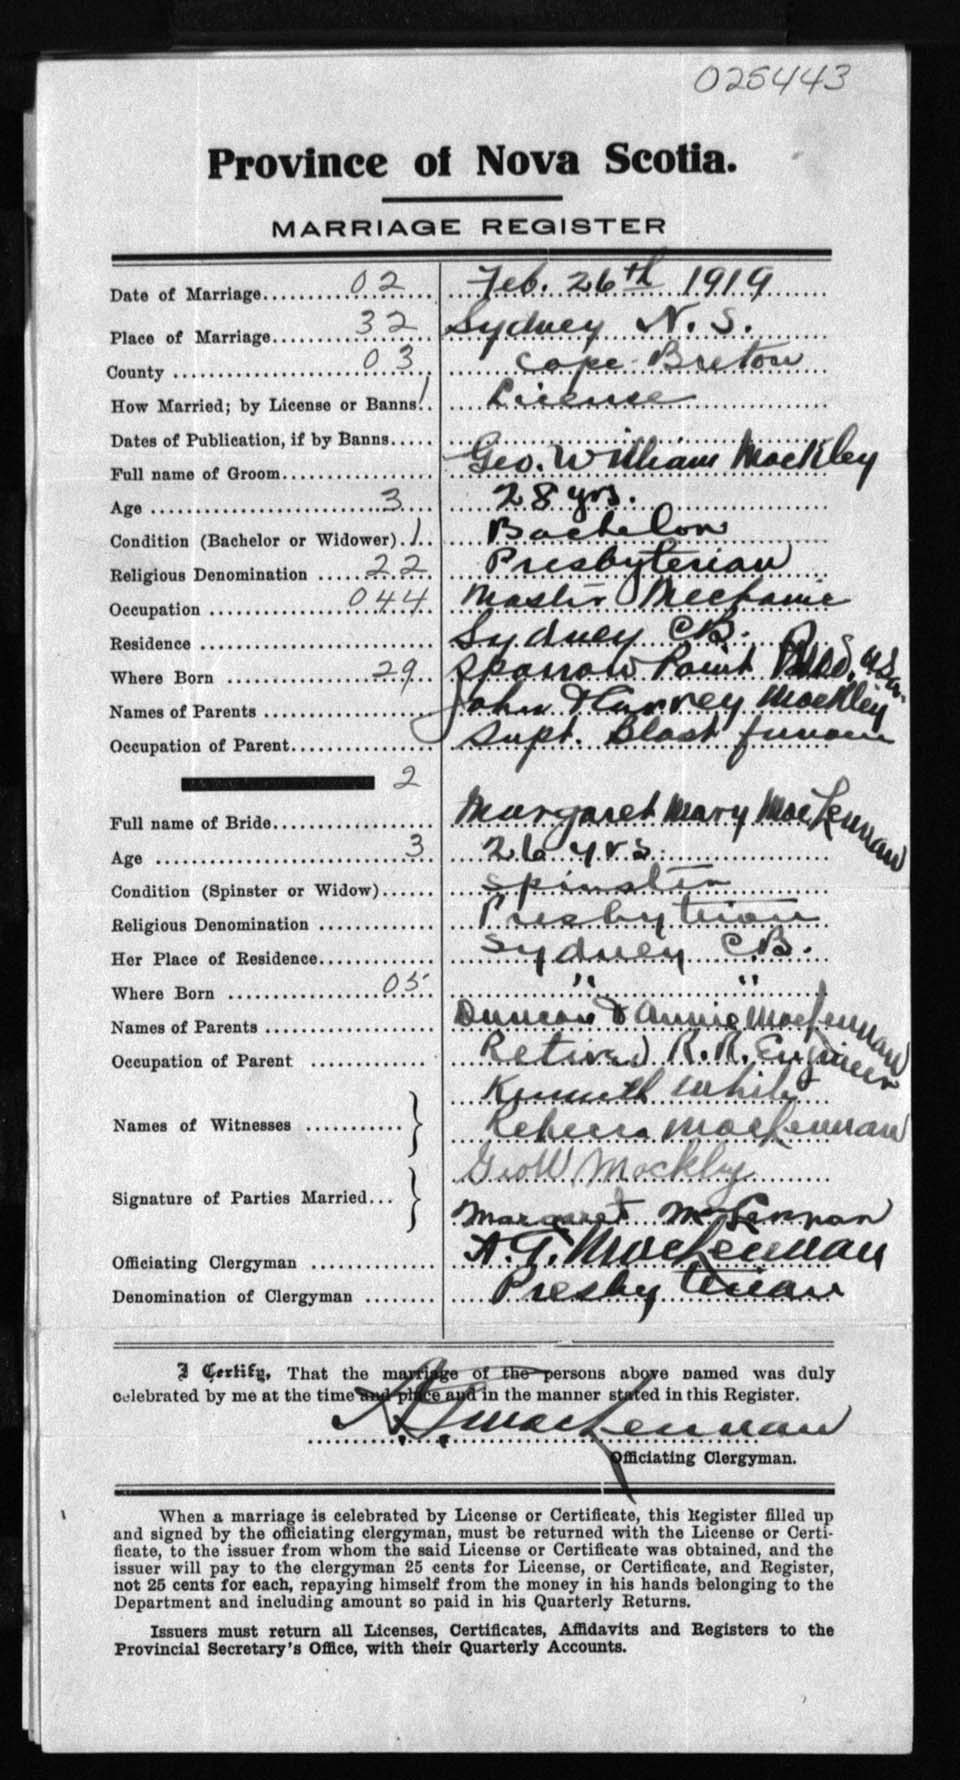 025443
Province of Nova Scotia.
MARRIAGE REGISTER
Date of Marriage 02 Feb. 26th 1919
Place of Marriage 32 Sydney N. S.
County 03 Cape Breton
How Married; by License or Banns 1 License
Dates of Publication, if by Banns
Full name of Groom Geo. William Mackley
Age 3 28 yrs.
Condition (Bachelor or Widower) 1 Bachelor
Religious Denomination 22 Presbyterian
Occupation 044 Master Mechanic
Residence Sydney CB.
Where Born 29 Sparrow Point USA.
Names of Parents John & Harvey Mackley
Occupation of Parent Supt. Blast furnace
2
Full name of Bride Margaret Mary MacLennan
Age 3 26 yrs.
Condition (Spinster or Widow) Spinster
Religious Denomination Presbyterian
Her Place of Residence Sydney C.B.
Where Born 05 " "
Names of Parents Duncan & Annie MacLennan
Occupation of Parent Retired R. R. Engineer
Kenneth White
Names of Witnesses } Rebecca MacLennan
Geo W Mackley
Signature of Parties Married } Margaret McLennan
Officiating Clergyman A. T. MacLennan
Denomination of Clergyman Presbyterian
I Certify, That the marriage of the persons above named was duly
celebrated by me at the time and place and in the manner stated in this Register.
A. T. MacLennan
Officiating Clergyman.
When a marriage is celebrated by License or Certificate, this Register filled up
and signed by the officiating clergyman, must be returned with the License or Certi-
ficate, to the issuer from whom the said License or Certificate was obtained, and the
issuer will pay to the clergyman 25 cents for License, or Certificate, and Register,
not 25 cents for each, repaying himself from the money in his hands belonging to the
Department and including amount so paid in his Quarterly Returns.
Issuers must return all Licenses, Certificates, Affidavits and Registers to the
Provincial Secretary's Office, with their Quarterly Accounts.